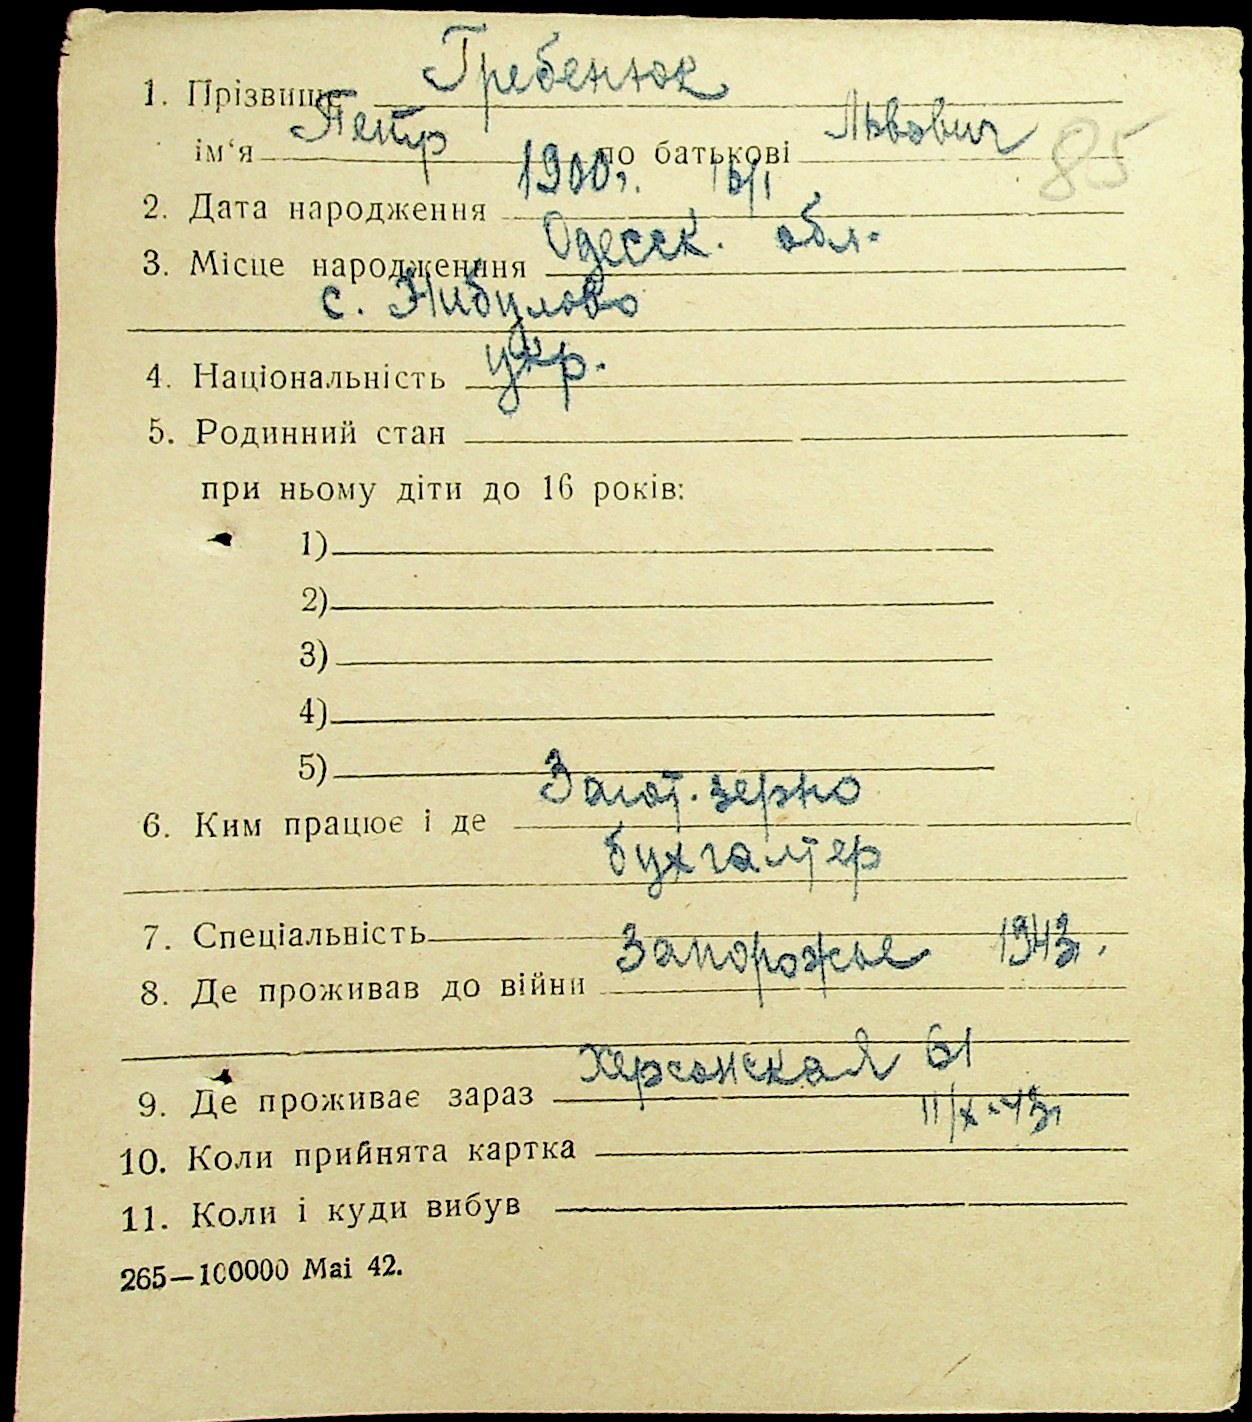 1. Прізвище Гребенюк
ім‘я Петр по батькові Львович 85
2. Дата народження 1900г. 16/I
3. Місце народження Одесск. обл.
с.
4. Національність укр.
5. Родинний стан
при ньому діти до 16 років:
1)
2)
3)
4)
5)
6. Ким працює і де Загот. зерно
бухгалтер
7. Спеціальність
8. Де проживав до війни Запорожье 1943г.
9. Де проживає зараз Херсонская 61
10. Коли прийнята картка 11/X-43г
11. Коли і куди вибув
265—100000 Mai 42.